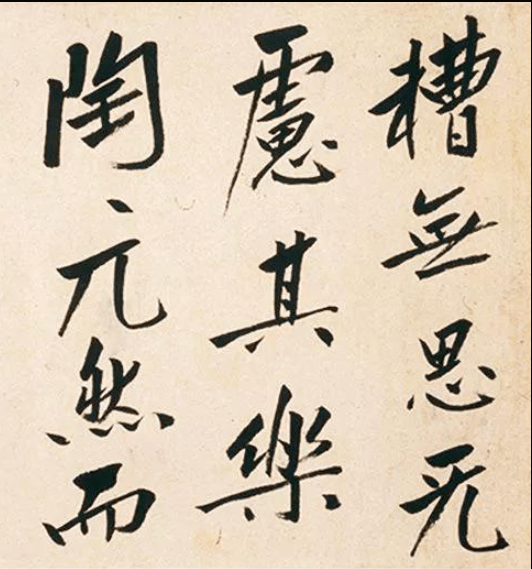 糟無思无
慮其樂
陶兀然而